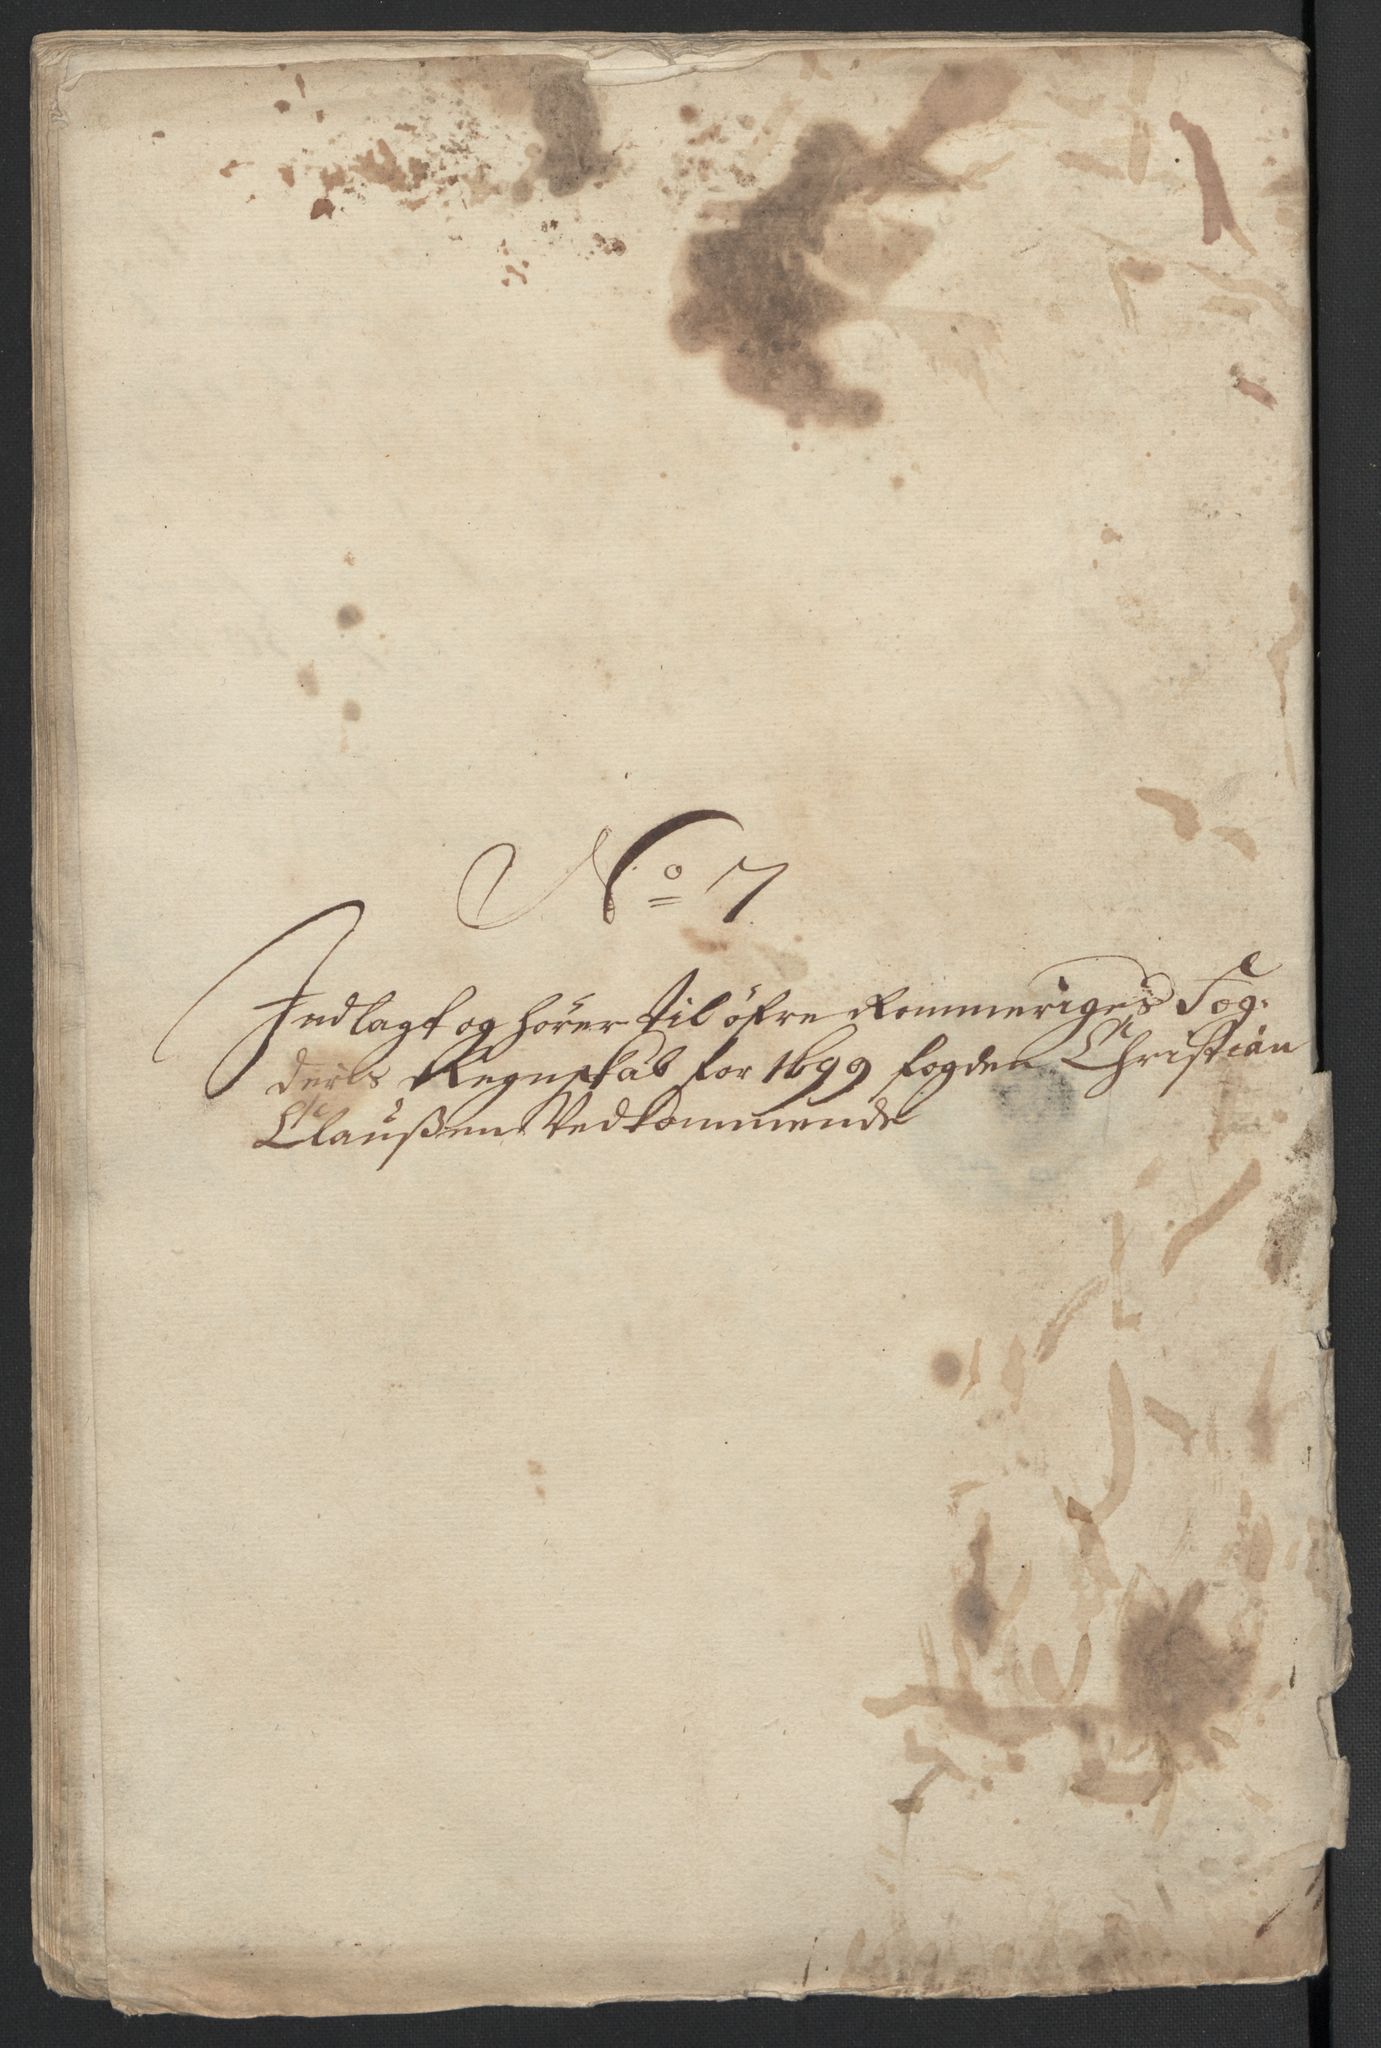 No 7
Indlagt og hörer til öfre Rommeriges Fog-
deris Regnskab for 1699 fogden Christian
Claußen Vedkommende